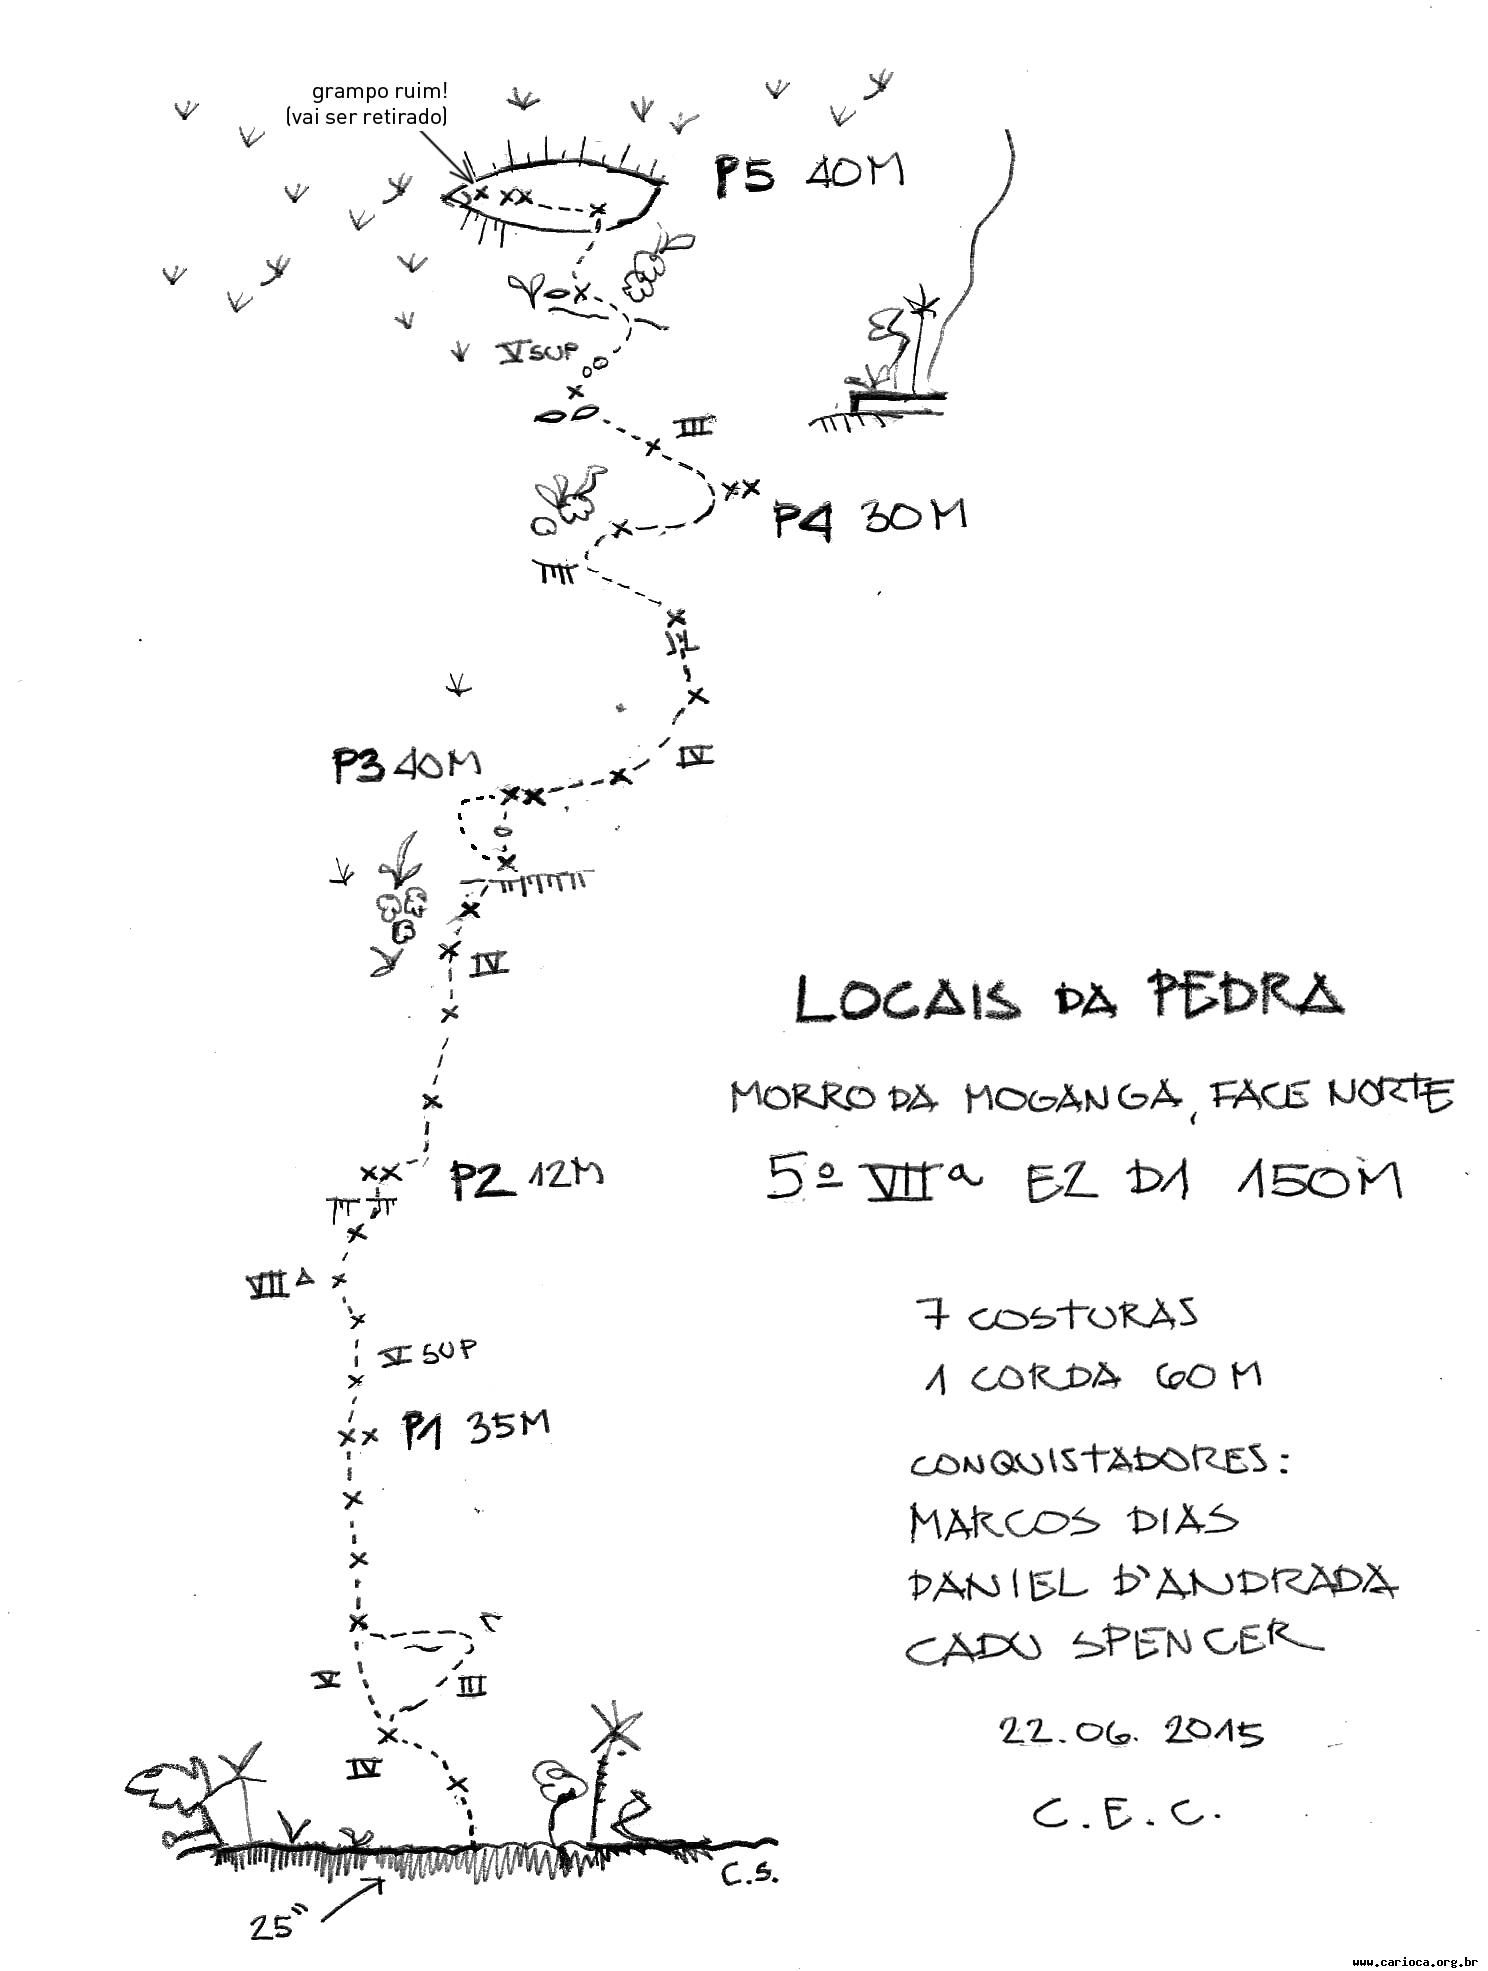 grampo ruim!
(vai ser retirado)
P5 40M
V SUP
III
P4 30M
VI
IV
P3 40M
IV
LOCAIS DA PEDRA
MORRO DA MOGANGA, FACE NORTE
5º VIIª E2 D1 150M
P2 12M
VII A
VI SUP
P1 35M
7 COSTURAS
1 CORDA 60M
CONQUISTADORES:
MARCOS DIAS
DANIEL D'ANDRADA
CADU SPENCER
V
III
IV
22.06.2015
C.E.C.
C.S.
25"
www.carioca.org.br